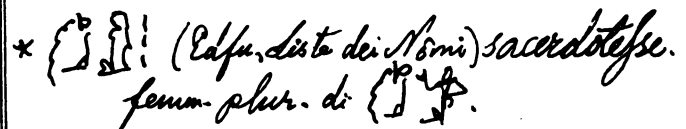 * (Edfu, Liste dei Nomi) sacerdotesse.
femm. plur. di .